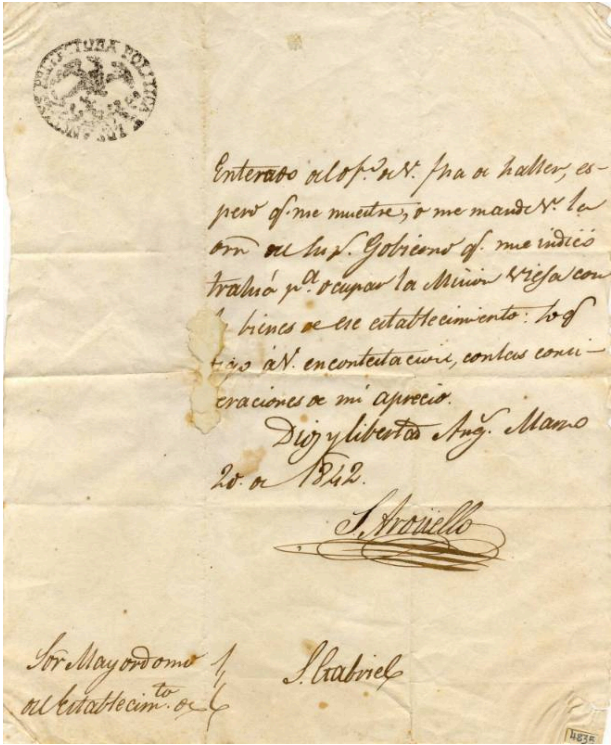 PREFECTURA POLITICA DE LOS ANGELES
Enterado del of.º de V. fha de haller, es-
pero q.e me muestre, o me mande V. la
orn del Sup.r Gobierno q.e me indicó
trahía p.a ocupar la Mision Vieja con
bienes de ese establecimiento: lo q
digo á V. en contestacion, con las consi-
eraciones de mi aprecio.
Dios y libertad Ang.s Marzo
20. de 1842.
S. Argüello
Sor Mayordomo
del Establecim.to de
S. Gabriel
4835